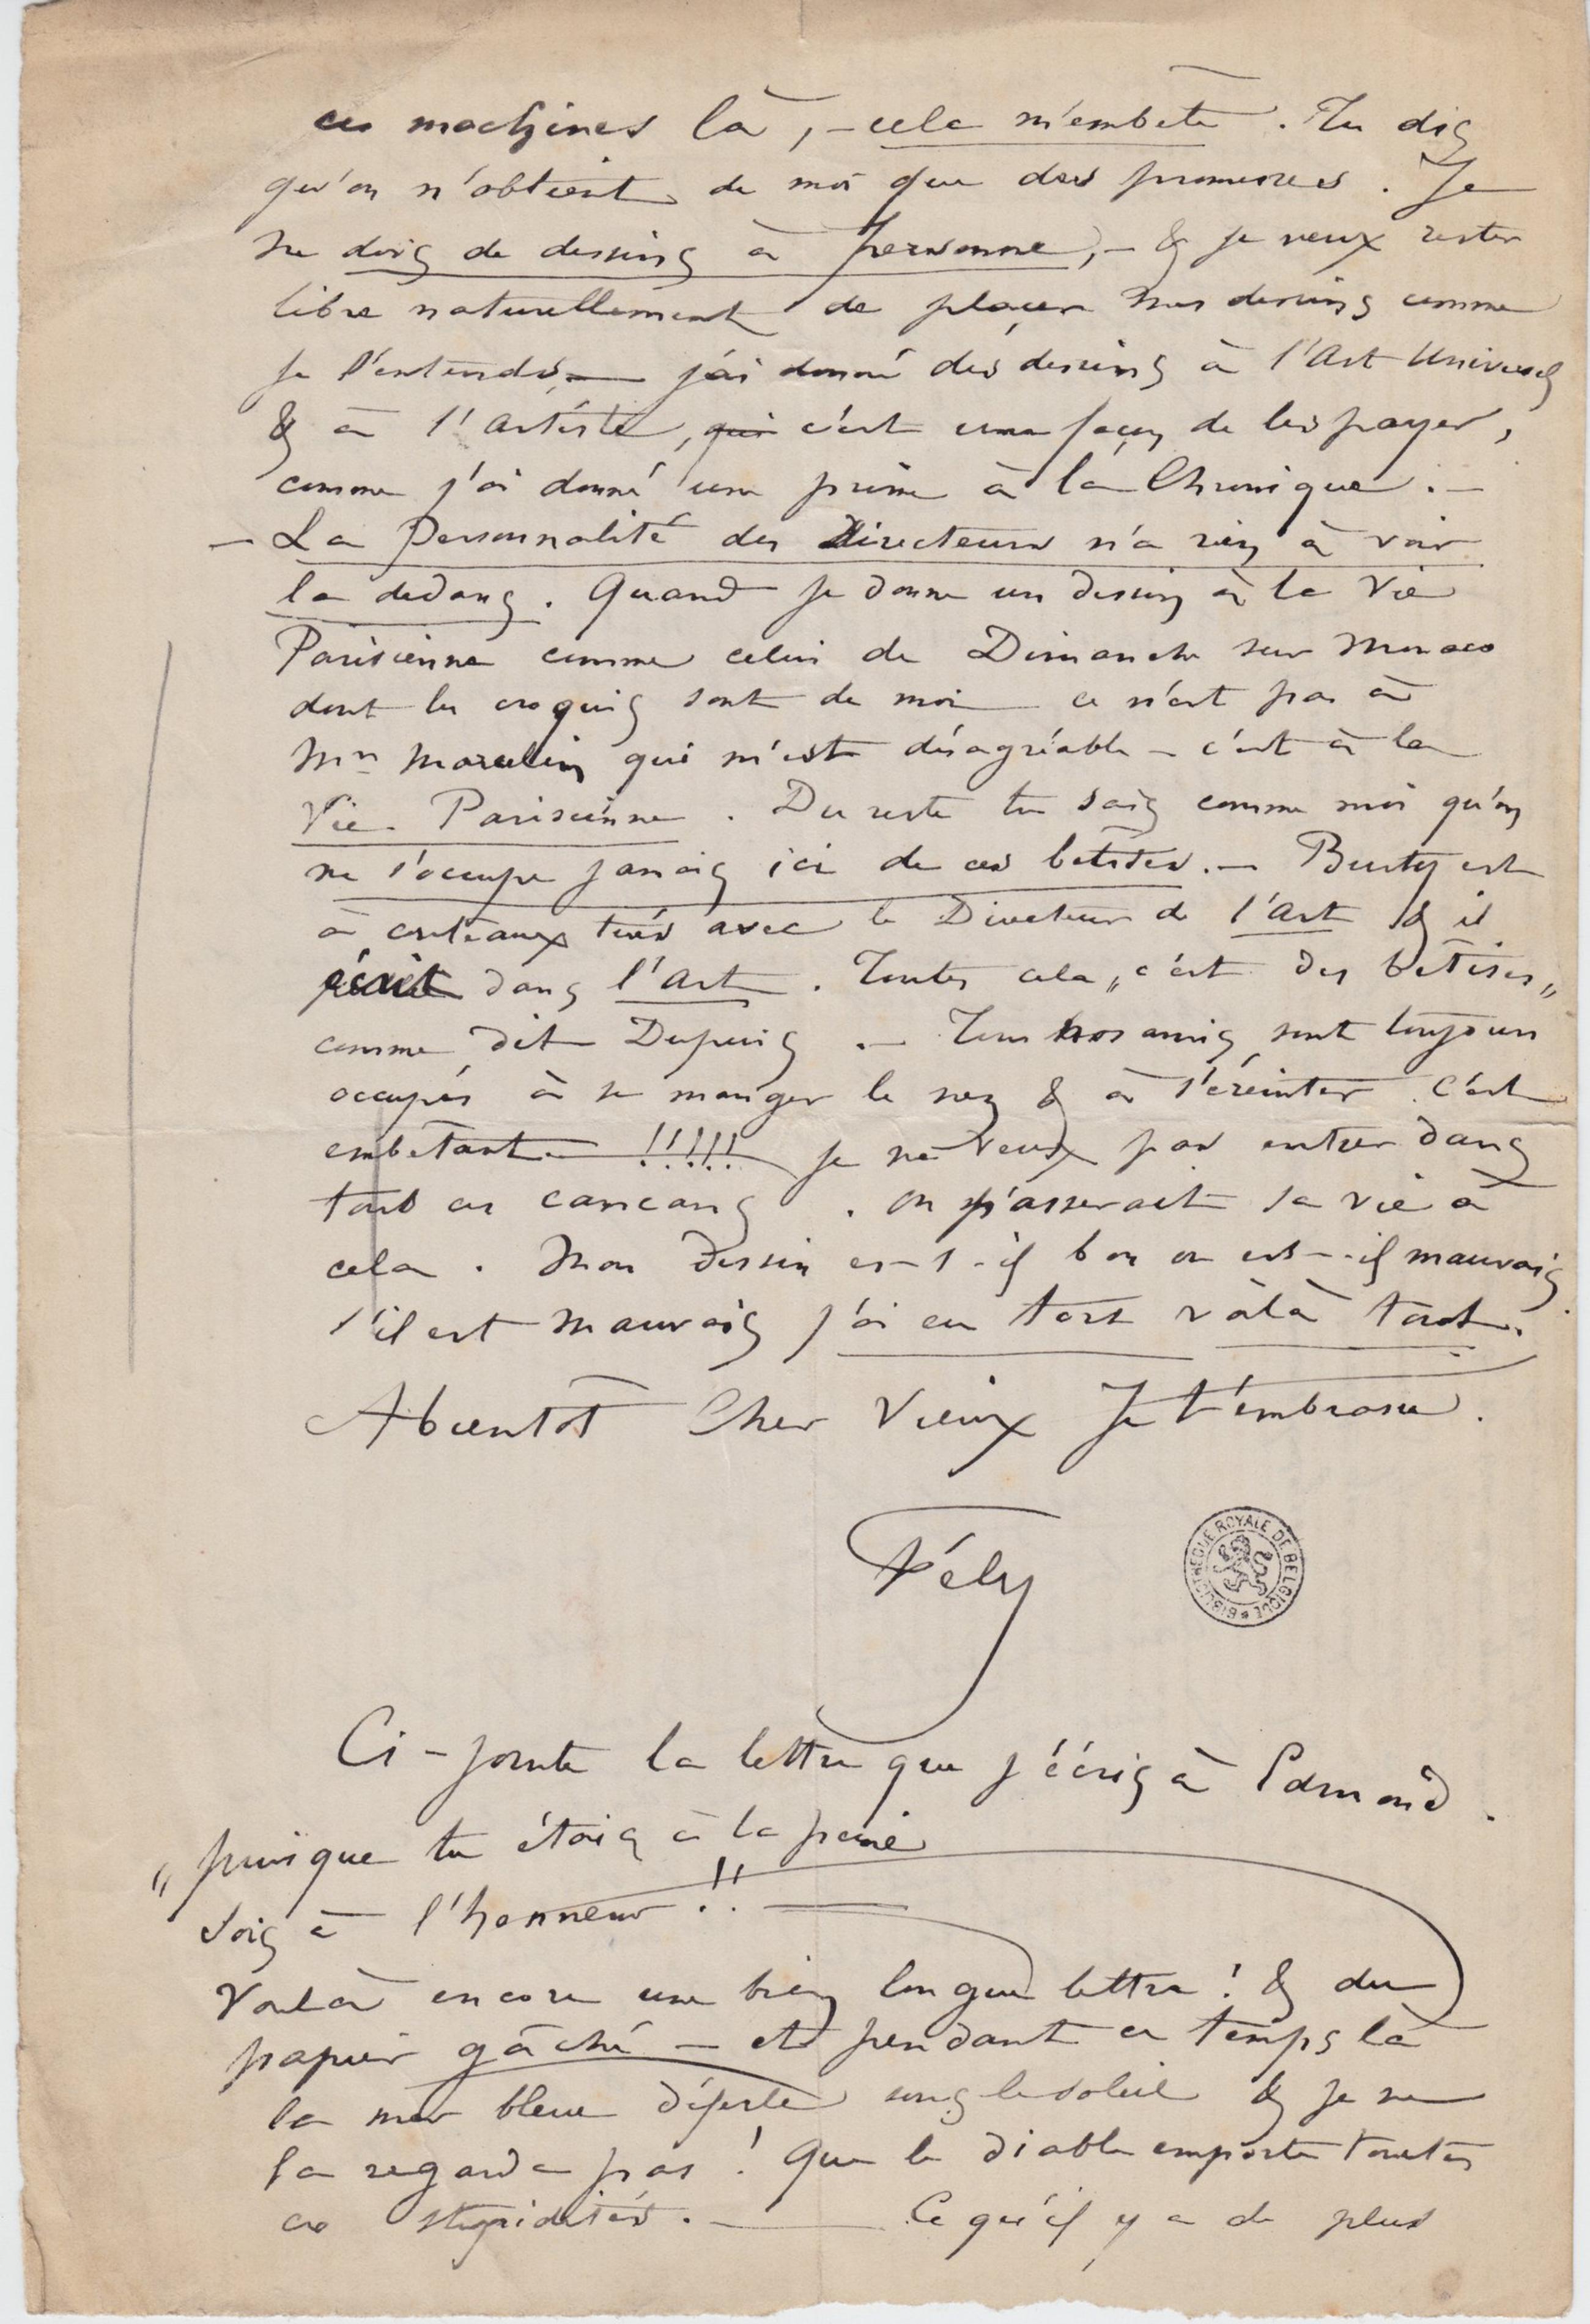 ces machines là, – cela m'embête. Tu dis
qu'on n'obtient de moi que des promesses. Je
ne dois de dessins à personne, – & je veux rester
libre naturellement de placer mes dessins comme
je l'entends, — j'ai donné des dessins à l'Art Universel
& à l'Artiste, qui c'est une façon de les payer,
comme j'ai donné une prime à la Chronique. –
– La Personnalité des Directeurs n'a rien à voir
la dedans. Quand je donne un dessin à la Vie
Parisienne comme celui de Dimanche sur Monaco
dont les croquis sont de moi – ce n'est pas à
Mr Marcelin qui m'est désagréable – c'est à la
Vie Parisienne. Du reste tu sais comme moi qu'on
ne s'occupe jamais ici de ces betises. – Burty est
à couteaux tirés avec le Directeur de l'Art & il
écrit dans l'Art. Toutes cela „ c'est des bêtises „
comme dit Dupuis. – Tous nos amis sont toujours
occupés à se manger le nez & à s'éreinter c'est
embêtant — !!!!! je ne veux pas entrer dans
tous ces cancans. On passerait sa vie à
cela. Mon dessin es-t-il bon ou est-il mauvais.
s'il est mauvais j'ai eu tort voàlà tout.
A bientôt Cher Vieux Je t'embrasse.
Fély
BIBLIOTHEQUE ROYALE DE BELGIQUE *
Ci-jointe la lettre que j'écris à Edmond.
„ puisque tu étais à la peine
sois à l'honneur !! —
Voilà encore une bien longue lettre ! & du
papier gâché – et pendant ce temps là
la mer bleue déferle sous le soleil & je ne
la regarde pas ! Que le diable emporte toutes
ces stupidités. — Ce qu'il y a de plus